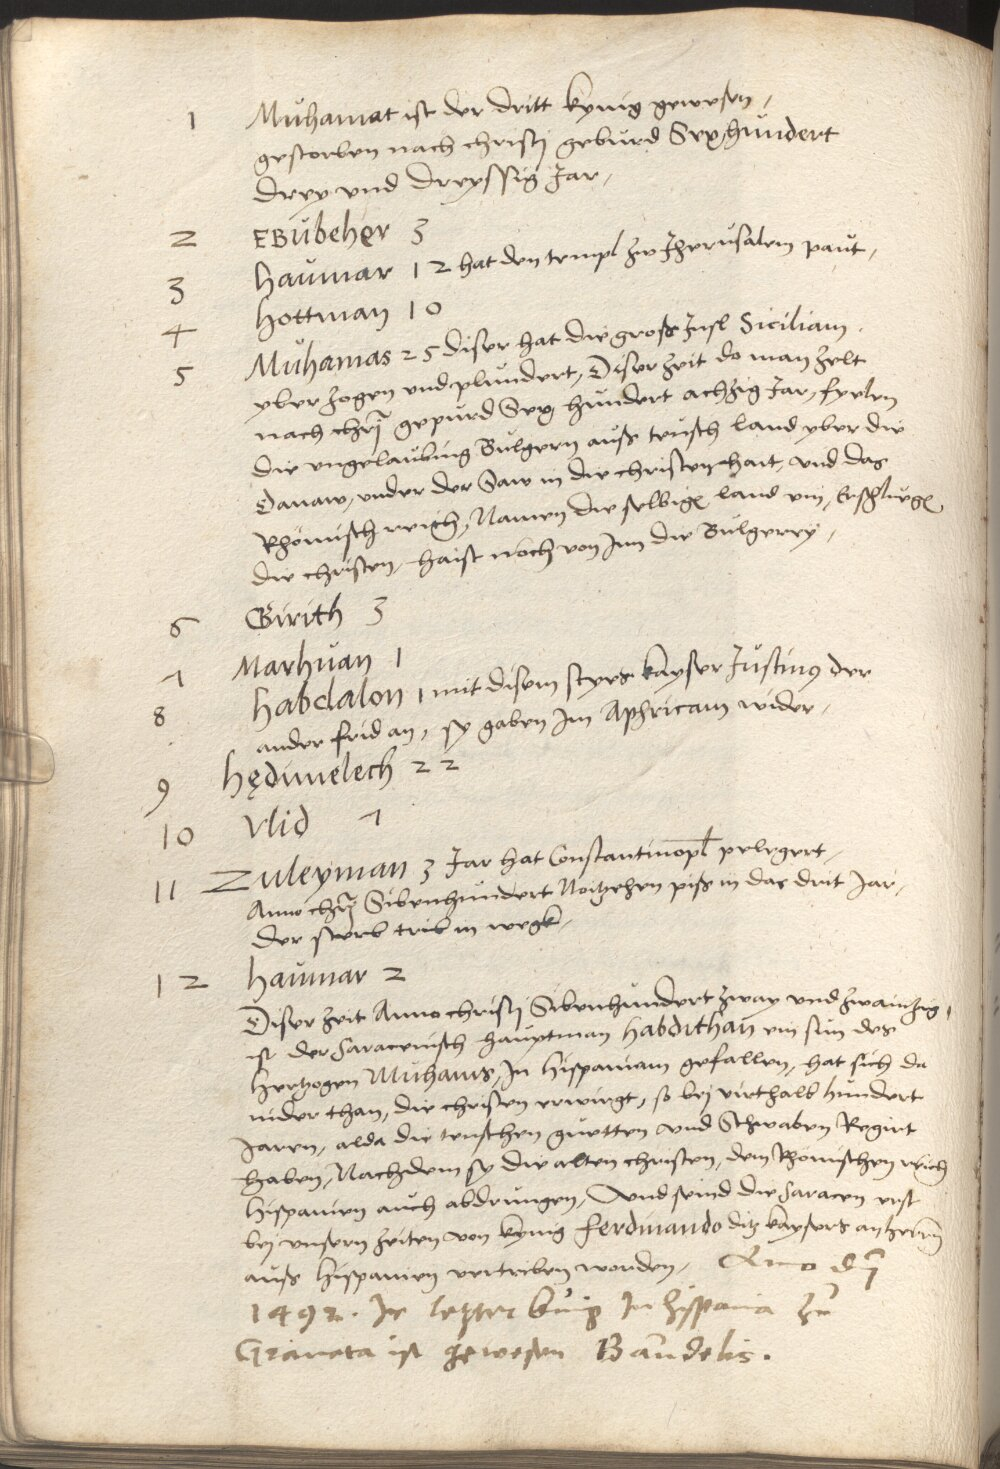 1 Muhamat ist der dritt kynig gewesen,
gestorben nach christj geburd Sexhundert
drey vnd dreyssig Jar,
2 EBubeher 3
3 haumar 12 hat den templ zw Jherusalem paut,
4 hottman 10
5 Muhamas 25 diser hat die gross Insl Siciliam
yberzogen vnd plundert, Diser zeit do man zelt
nach chrj gepurd Sex hundert achzig Jar, fyelen
die vngelaubing Bulgern auss teusch land yber die
Danaw, vnder der Saw in die christenhait, vnd das
Rhömisch reich, Namen die selbigen land ein, Erschluegen
die christen, haist noch von Inn die Bulgerey,
6 Girith 3
7 Marhuan 1
8 habdalon 1 mit disem kayser Justinus der
ander frid an, sy gaben Im Aphricam wider,
9 hedimelech 22
10 Vlid 7
11 Zuleyman 3 Jar hat Constantinopl pelegert,
Anno chrj Sibenhundert Noitzehen piss in das drit Jar,
der sterb trib in wegk,
12 haumar 2
Diser zeit Anno christj Sibenhundert zway vnd zwainzig,
ist der Saracenisch hauptman habdithan ein sun des
hertzogen Muhauis, In hispaniam gefallen, hat sich da
nider than, die christen erwirgt, so bei virthalb hundert
Jaren, alda die teuschen guetten vnd Schwaben Regirt
haben, Nachdem sy die alten christen, dem Rhomischen reich
hispanien auch abdrungen, Vnd seind die Saracen erst
bei vnsern zeiten von kynig ferdinando ditz kaysers anherrn
auss hispanien vertriben worden, Anno dnj
1492. Ir letzter kunig In hispania zu
Granata ist gewesen Baudelis.